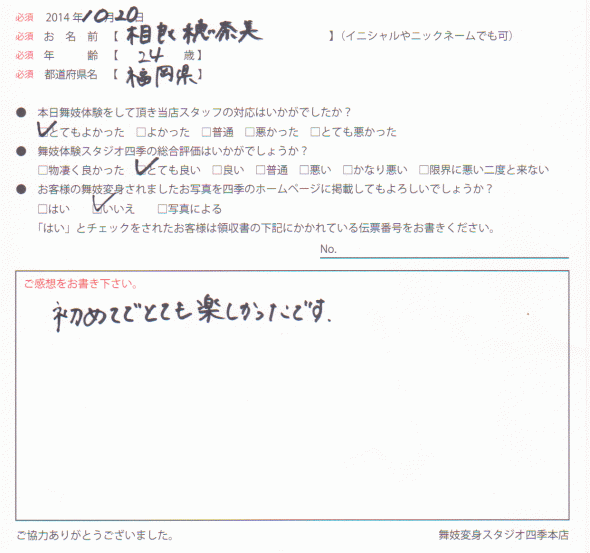 必須 2014年10月20日
必須 お 名 前 【 相良 穂奈美 】（イニシャルやニックネームでも可）
必須 年 齢 【 24 歳】
必須 都道府県名 【 福岡県 】
● 本日舞妓体験をして頂き当店スタッフの対応はいかがでしたか？
☑とてもよかった □よかった □普通 □悪かった □とても悪かった
● 舞妓体験スタジオ四季の総合評価はいかがでしょうか？
□物凄く良かった ☑とても良い □良い □普通 □悪い □かなり悪い □限界に悪い二度と来ない
● お客様の舞妓変身されましたお写真を四季のホームページに掲載してもよろしいでしょうか？
□はい ☑いいえ □写真による
「はい」とチェックをされたお客様は領収書の下記にかかれている伝票番号をお書きください。
No.
ご感想をお書き下さい。
初めてでとても楽しかったです.
ご協力ありがとうございました。 舞妓変身スタジオ四季本店